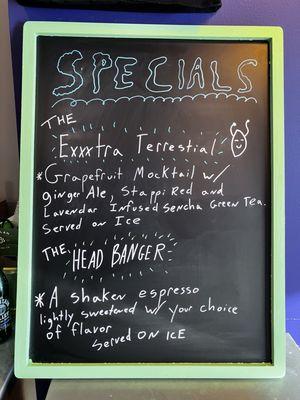 SPECIALS
THE
Exxxtra Terrestial
*Grapefruit Mocktail w/
ginger Ale, Stappi Red and
Lavendar Infused Sencha Green Tea.
Served on Ice
THE
HEAD BANGER
*A shaken espresso
lightly sweetened w/ your choice
of flavor
Served ON ICE